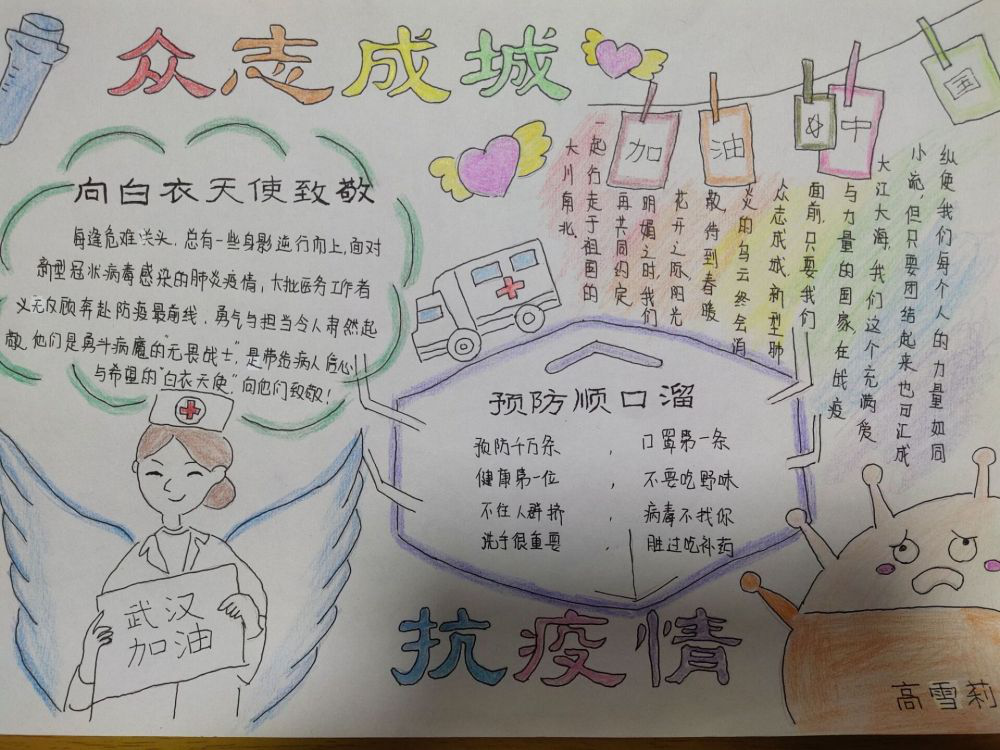 众志成城
加
油
中
国
向白衣天使致敬
每逢危难关头,总有一些身影逆行而上,面对
新型冠状病毒感染的肺炎疫情,大批医务工作者
义无反顾奔赴防疫最前线,勇气与担当令人肃然起
敬,他们是勇斗病魔的无畏战士",是带给病人信心
与希望的"白衣天使"。向他们致敬!
纵使我们每个人的力量如同
小流,但只要团结起来也可汇成
大江大海,我们这个充满爱
与力量的国家在战疫
面前,只要我们
众志成城,新型肺
炎的乌云终会消
散,待到春暖
花开之际,阳光
明媚之时,我们
再共同约定
一起行走于祖国的
大川南北.
预防顺口溜
预防千万条 , 口罩第一条
健康第一位 , 不要吃野味
不往人群挤 , 病毒不找你
洗手很重要 , 胜过吃补药
武汉
加油
抗疫情
高雪莉